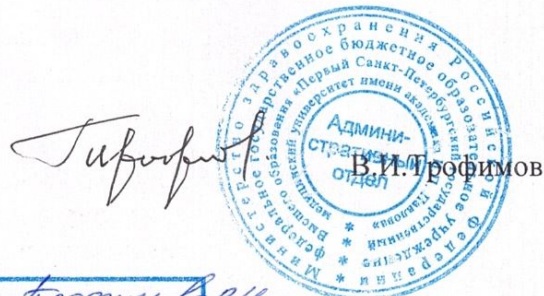 Министерство здравоохранения Российской Федерации *
федеральное государственное бюджетное образовательное учреждение *
Высшего образования «Первый Санкт-Петербургский государственный
медицинский университет имени академика
Павлова» *
Админи-
стративный
отдел
В.И.Трофимов